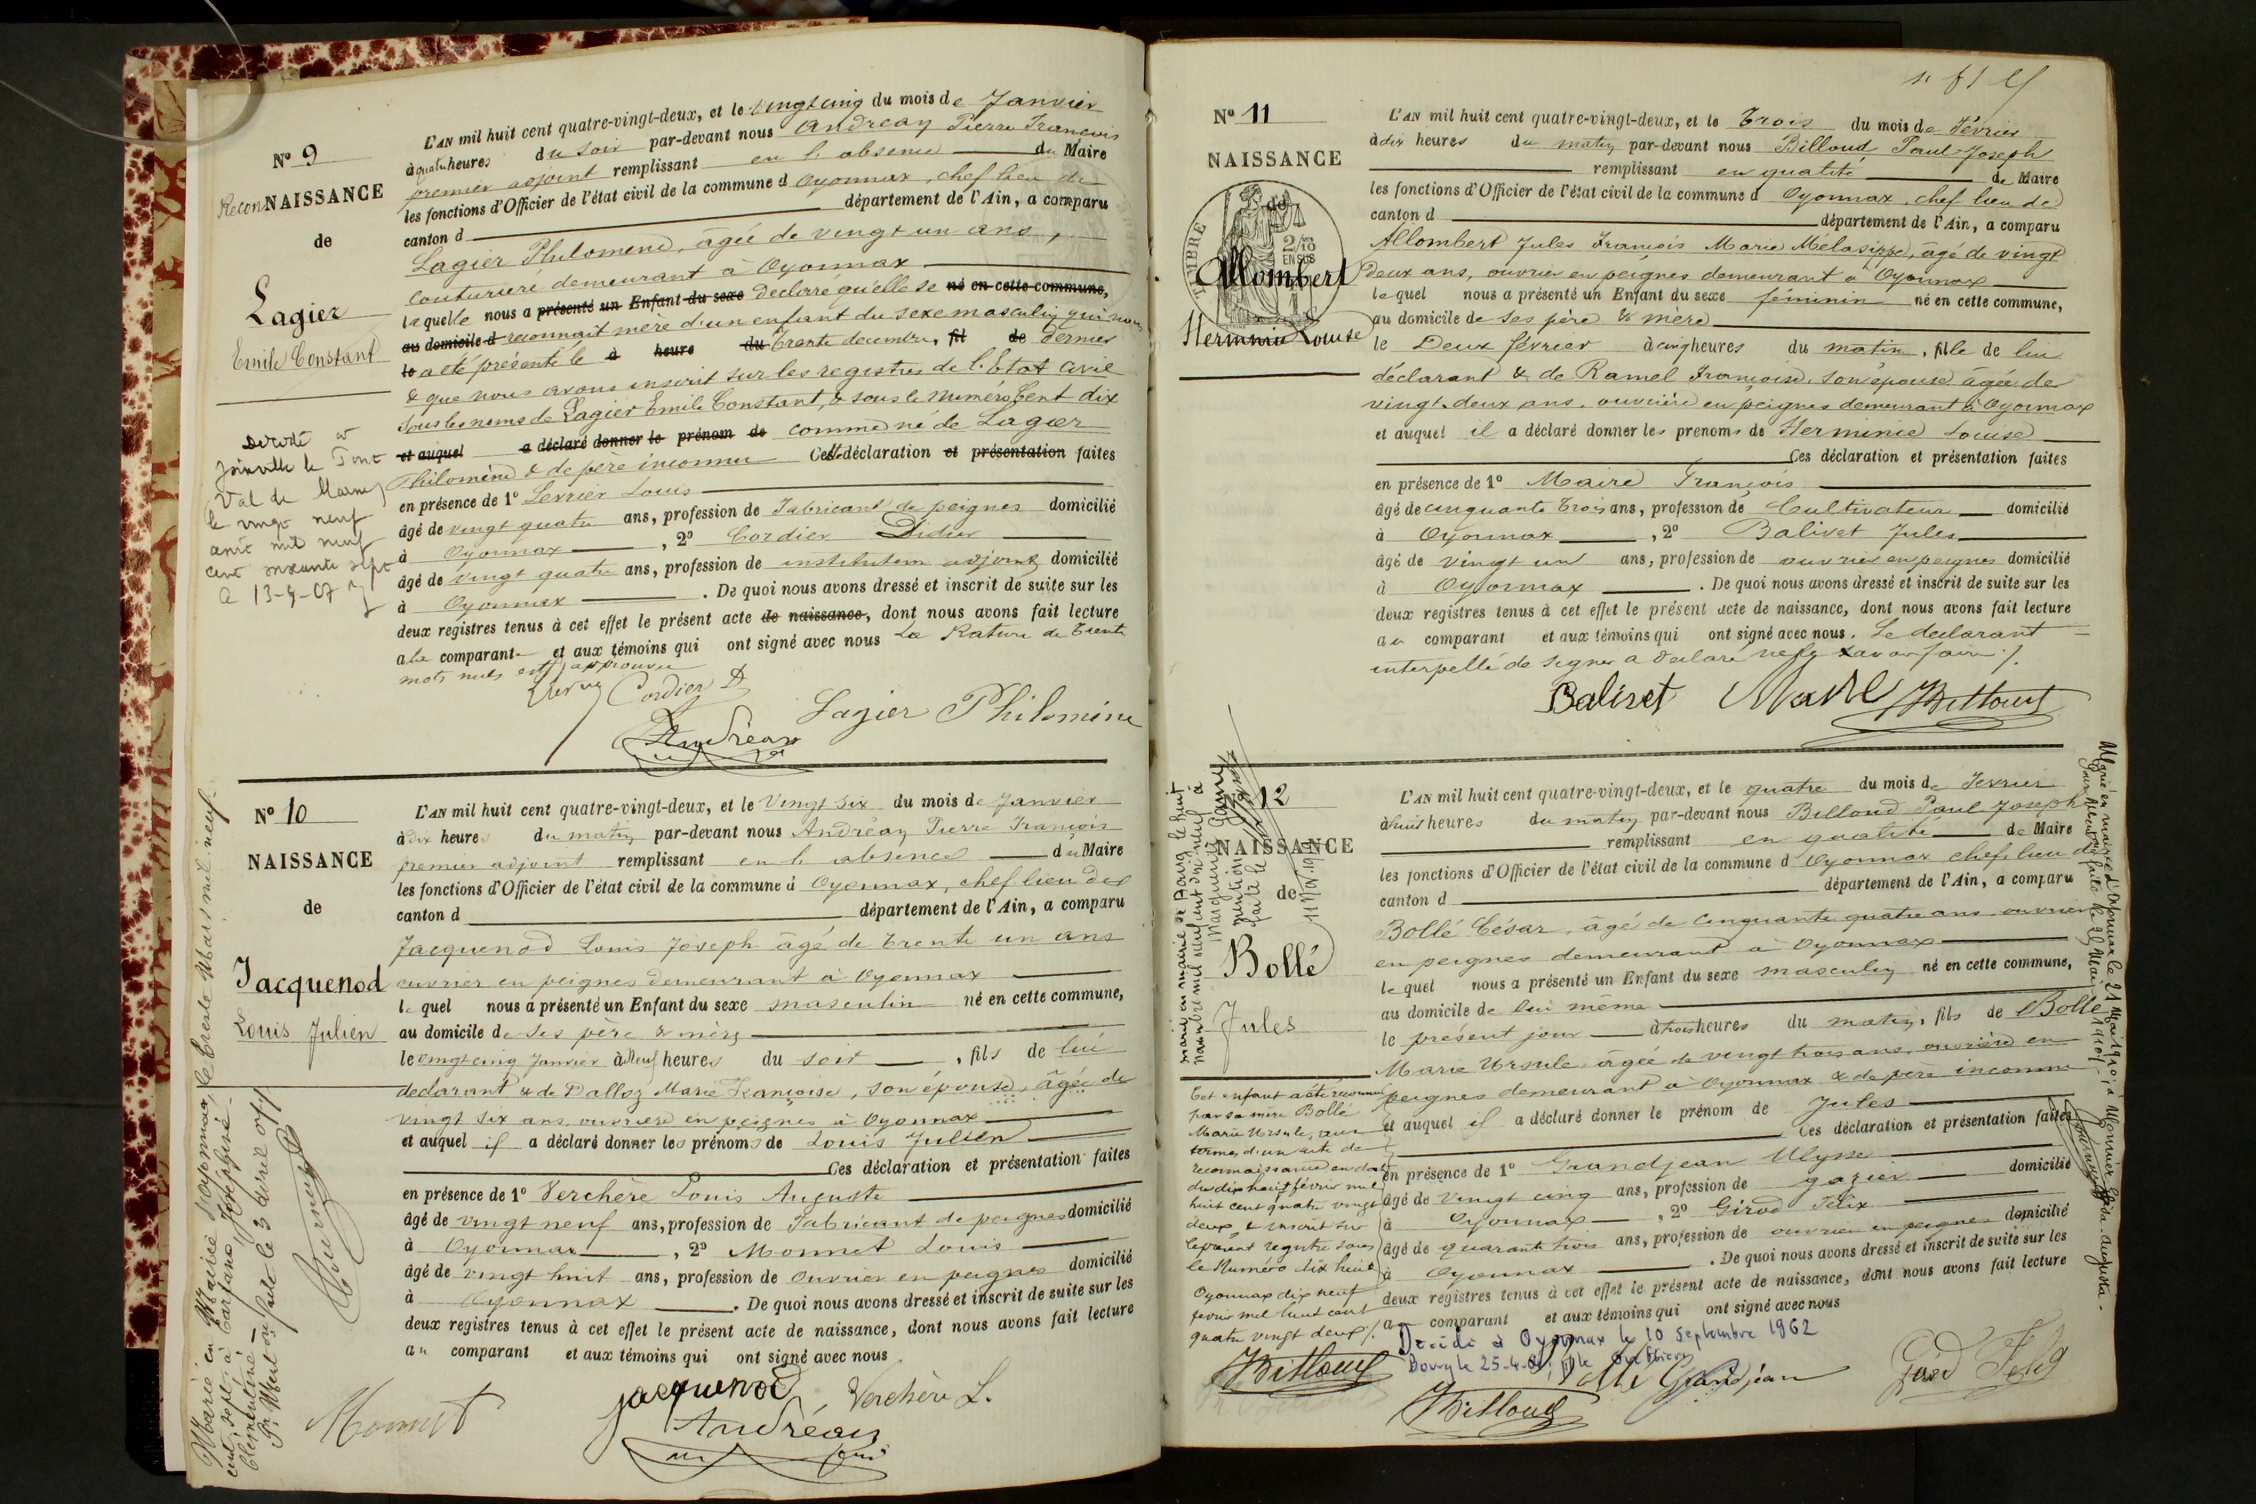 N° 9
Recon NAISSANCE
de
Lagier
Emile Constant
L'AN mil huit cent quatre-vingt-deux, et le vingt cinq du mois de Janvier
à quatre heures du soir par-devant nous Andréan Pierre François
premier adjoint remplissant en l'absence du Maire
les fonctions d'Officier de l'état civil de la commune d Oyonnax, chef lieu de
canton d département de l'Ain, a comparu
Lagier Philomène, âgée de vingt un ans,
couturière demeurant à Oyonnax
laquelle nous a présenté un Enfant du sexe déclare qu'elle se né en cette commune,
au domicile d reconnait mère d'un enfant du sexe masculin qui nous
le a été présenté le à heure du trente décembre, fil de dernier
& que nous avons inscrit sur les registres de l'Etat civil
sous les noms de Lagier Emile Constant, & sous le numéro Cent dix
et auquel a déclaré donner le prénom de comme né de Lagier
Philomène & de père inconnu Cette déclaration et présentation faites
en présence de 1° Levrier Louis
âgé de vingt quatre ans, profession de Fabricant de peignes domicilié
à Oyonnax , 2° Cordier Didier
âgé de vingt quatre ans, profession de instituteur adjoint domicilié
à Oyonnax . De quoi nous avons dressé et inscrit de suite sur les
deux registres tenus à cet effet le présent acte de naissance, dont nous avons fait lecture
a la comparante et aux témoins qui ont signé avec nous La Rature de trente
mots nuls est approuvée
Cordier D
Lagier Philomène
Andréan
Décédé à
Joinville le Pont
Val de Marne
le vingt neuf
août mil neuf
cent soixante sept
N° 10
NAISSANCE
de
Jacquenod
Louis Julien
L'AN mil huit cent quatre-vingt-deux, et le Vingt six du mois de Janvier
à dix heures du matin par-devant nous Andréan Pierre François
premier adjoint remplissant en l'absence du Maire
les fonctions d'Officier de l'état civil de la commune d Oyonnax, chef lieu de
canton d département de l'Ain, a comparu
Jacquenod Louis Joseph âgé de trente un ans
ouvrier en peignes demeurant à Oyonnax
le quel nous a présenté un Enfant du sexe masculin né en cette commune,
au domicile de ses père & mère
le vingt cinq Janvier à Neuf heures du soir , fils de lui
déclarant & de Dalloz Marie Françoise, son épouse, âgée de
vingt six ans, ouvrière en peignes à Oyonnax
et auquel il a déclaré donner les prénoms de Louis Julien
Ces déclaration et présentation faites
en présence de 1° Verchère Louis Auguste
âgé de vingt neuf ans, profession de Fabricant de peignes domicilié
à Oyonnax , 2° Monnet Louis
âgé de vingt huit ans, profession de Ouvrier en peignes domicilié
à Oyonnax . De quoi nous avons dressé et inscrit de suite sur les
deux registres tenus à cet effet le présent acte de naissance, dont nous avons fait lecture
au comparant et aux témoins qui ont signé avec nous
Monnet
jacquenod
Verchère L.
Andréan
Marié en Mairie d'Oyonnax, le treize Mars mil neuf
cent sept, à Joséphine
Clémentine
Pr Mention faite le 3 avril 07
N° 11
NAISSANCE
de
TIMBRE
2/10
EN SUS
Allombert
Herminie Louise
L'AN mil huit cent quatre-vingt-deux, et le Trois du mois de Février
à dix heures du matin par-devant nous Billoud Paul-Joseph
remplissant en qualité de Maire
les fonctions d'Officier de l'état civil de la commune d Oyonnax, chef lieu de
canton d département de l'Ain, a comparu
Allombert Jules François Marie Mélasippe, âgé de vingt
deux ans, ouvrier en peignes demeurant à Oyonnax
le quel nous a présenté un Enfant du sexe féminin né en cette commune,
au domicile de ses père & mère
le Deux février à cinq heures du matin, fille de lui
déclarant & de Ramel Françoise, son épouse âgée de
vingt-deux ans, ouvrière en peignes demeurant à Oyonnax
et auquel il a déclaré donner les prenoms de Herminie Louise
Ces déclaration et présentation faites
en présence de 1° Maire François
âgé de cinquante trois ans, profession de Cultivateur domicilié
à Oyonnax , 2° Balivet Jules
âgé de vingt un ans, profession de ouvrier en peignes domicilié
à Oyonnax . De quoi nous avons dressé et inscrit de suite sur les
deux registres tenus à cet effet le présent acte de naissance, dont nous avons fait lecture
au comparant et aux témoins qui ont signé avec nous. Le déclarant
interpellé de signer a déclaré ne le savoir faire ./.
Balivet Maire JBilloud
N° 12
NAISSANCE
de
Bollé
Jules
L'AN mil huit cent quatre-vingt-deux, et le quatre du mois de Fevrier
à huit heures du matin par-devant nous Billoud Paul Joseph
remplissant en qualité de Maire
les fonctions d'Officier de l'état civil de la commune d Oyonnax chef-lieu de
canton d département de l'Ain, a comparu
Bollé César, âgé de Cinquante quatre ans ouvrier
en peignes demeurant à Oyonnax
le quel nous a présenté un Enfant du sexe masculin né en cette commune,
au domicile de lui même
le présent jour à trois heures du matin, fils de Bollé
Marie Ursule, âgée de vingt trois ans, ouvrière en
peignes demeurant à Oyonnax & de père inconnu
et auquel il a déclaré donner le prénom de Jules
Ces déclaration et présentation faites
en présence de 1° Grandjean Ulysse
âgé de Vingt cinq ans, profession de gazier domicilié
à Oyonnax , 2° Girod Félix
âgé de quarante trois ans, profession de ouvrier en peignes domicilié
à Oyonnax . De quoi nous avons dressé et inscrit de suite sur les
deux registres tenus à cet effet le présent acte de naissance, dont nous avons fait lecture
au comparant et aux témoins qui ont signé avec nous
Décédé à Oyonnax le 10 Septembre 1962
Bollé Grandjean
JBilloud
Cet enfant a été reconnu
par sa mère Bollé
Marie Ursule, aux
termes d'un acte de
reconnaissance en date
du dix huit février mil
huit cent quatre vingt
deux, & inscrit sur
le présent registre sous
le Numéro dix huit
Oyonnax dix neuf
fevrier mil huit cent
quatre vingt deux ./.
JBilloud
Marié en mairie d'Oyonnax le 21 Mai 1910, à Monnier Elida-Augusta.